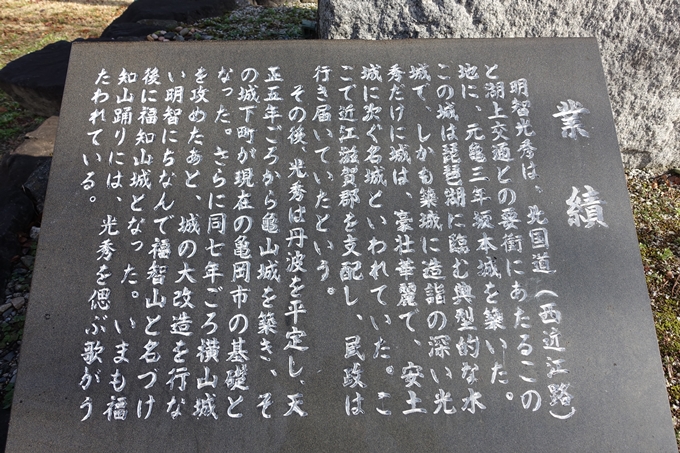 業績
明智光秀は、北国道(西近江路)
と湖上交通との要衝にあたるこの
地に、元亀三年坂本城を築いた。
この城は琵琶湖に臨む典型的な水
城で、しかも築城に造詣の深い光
秀だけに城は、豪壮華麗で、安土
城に次ぐ名城といわれていた。こ
こで近江滋賀郡を支配し、民政は
行き届いていたという。
その後、光秀は丹波を平定し、天
正五年ごろから亀山城を築き、そ
の城下町が現在の亀岡市の基礎と
なった。さらに同七年ごろ横山城
を攻めたあと、城の大改造を行な
い明智にちなんで福智山と名づけ
後に福知山城となった。いまも福
知山踊りには、光秀を偲ぶ歌がう
たわれている。